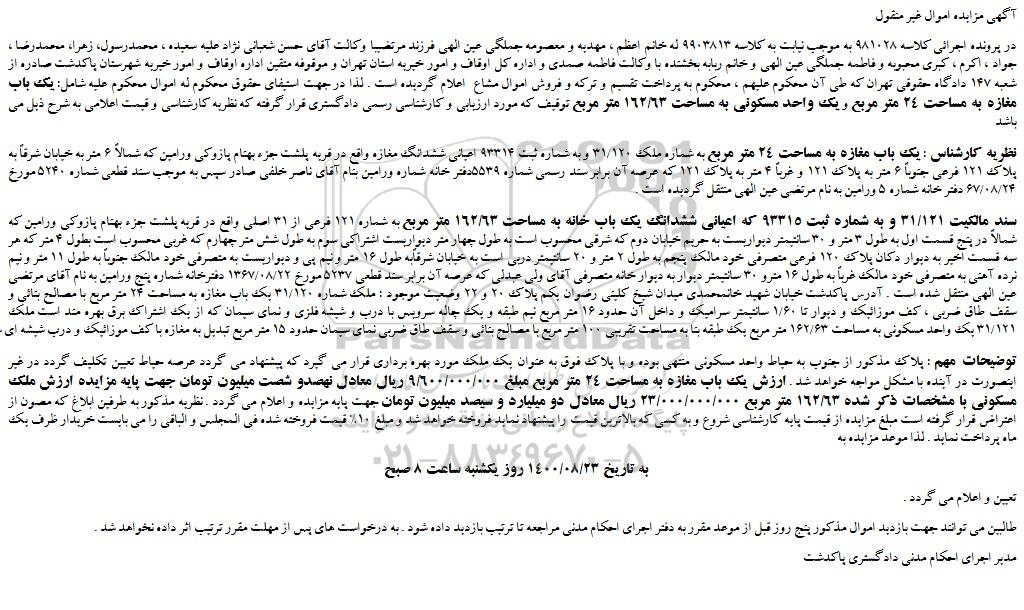 آگهی مزابده اموال غیر منقول
در پرونده اجرائی کلاسه ۹۸۱۰۲۸ به موجب نیابت به کلاسه ۹۹۰۳۸۱۳ له خانم اعظم ، مهدیه و معصومه جملگی عین الهی فرزند مرتضیبا وکالت آقای حسن شعبانی نژاد علیه سعیده ، محمدرسول، زهرا، محمدرضا ،
جواد ، اکرم ، کبری محبوبه و فاطمه جملگی عین الهی و خانم ربابه بخشنده با وکالت فاطمه صمدی و اداره کل اوقاف و امور خیریه استان تهران و موقوفه متقین اداره اوقاف و امور خیریه شهرستان پاکدشت صادره از
شعبه ۱۴۷ دادگاه حقوقی تهران که طی آن محکوم علیهم ، محکوم به پرداخت تقسیم و ترکه و فروش اموال مشاع اعلام گردیده است . لذا در جهت استیفای حقوق محکوم له اموال محکوم علیه شامل: یک باب
مغازه به مساحت ۲۴ متر مربع و یک واحد مسکونی به مساحت ۱۶۲/۶۳ متر مربع توقیف که مورد ارزیابی و کارشناسی رسمی دادگستری قرار گرفته که نظریه کارشناسی و قیمت اعلامی به شرح ذیل می
باشد
نظریه کارشناس : یک باب مغازه به مساحت ۲۴ متر مربع به شماره ملک ۳۱/۱۲۰ و به شماره ثبت ۹۳۳۱۴ اعیانی ششدانگ مغازه واقع در قریه پلشت جزء بهنام پازوکی ورامین که شمالاً ۶ متر به خیابان شرقاً به
پلاک ۱۲۱ فرعی جنوباً ۶ متر به پلاک ۱۲۱ و غرباً ۴ متر به پلاک ۱۲۱ که عرصه آن برابر سند رسمی شماره ۵۵۳۹دفتر خانه شماره ورامین بنام آقای ناصر خلفی صادر سپس به موجب سند قطعی شماره ۵۲۴۰ مورخ
۶۷/۰۸/۲۴ دفتر خانه شماره ۵ ورامین به نام مرتضی عین الهی منتقل گردیده است .
سند مالکیت ۳۱/۱۲۱ و به شماره ثبت ۹۳۳۱۵ که اعیانی ششدانگ یک باب خانه به مساحت ۱۶۲/۶۳ متر مربع به شماره ۱۲۱ فرعی از ۳۱ اصلی واقع در قریه پلشت جزء بهنام پازوکی ورامین که
شمالاً در پنج قسمت اول به طول ۳ متر و ۳۰ سانتیمتر دیواریست به حریم خیابان دوم که شرقی محسوب است به طول چهار متر دیواریست اشتراکی سوم به طول شش متر چهارم که غربی محسوب است بطول ۴ متر که هر
سه قسمت اخیر به دیوار دکان پلاک ۱۲۰ فرعی متصرفی خود مالک پنجم به طول ۲ متر و ۲۰ سانتیمتر دربی است به خیابان شرقابه طول ۱۶ متر و نیم پی و دیواریست به متصرفی خود مالک جنوباً به طول ۱۱ متر و نیم
نرده آهنی به متصرفی خود مالک غرباً به طول ۱۶ مترو ۳۰ سانتیمتر دیوار به دیوار خانه متصرفی آقای ولی عبدلی که عرصه آن برابر سند قطعی ۵۲۳۷ مورخ ۱۳۶۷/۰۸/۲۲ دفترخانه شماره پنج ورامین به نام آقای مرتضی
عین الهی منتقل شده است . آدرس پاکدشت خیابان شهید خانمحمدی میدان شیخ کلینی رضوان یکم پلاک ۲۰ و ۲۲ وضعیت موجود : ملک شماره ۳۱/۱۲۰ یک باب مغازه به مساحت ۲۴ متر مربع با مصالح بنائی و
سقف طاق ضربی ، کف موزائیک و دیوار تا ۱/۶۰ سانتیمتر سرامیک و داخل آن حدود ۱۶ متر مربع نیم طبقه و یک چاله سرویس با درب و شیشه فلزی و نمای سیمان که از یک اشتراک برق بهره مند است ملک
۳۱/۱۲۱ یک واحد مسکونی به مساحت ۱۶۲/۶۳ متر مربع یک طبقه بنا به مساحت تقریبی ۱۰۰ متر مربع با مصالح بنائی و سقف طاق ضربی نمای سیمان حدود ۱۵ متر مربع تبدیل به مغازه با کف موزائیک و درب شیشه ای .
توضیحات مهم : پلاک مذکور از جنوب به حیاط واحد مسکونی منتهی بوده و با پلاک فوق به عنوان یک ملک مورد بهره برداری قرار می گیرد که پیشنهاد می گردد عرصه حیاط تعیین تکلیف گردد در غیر
اینصورت در آینده با مشکل مواجه خواهد شد . ارزش یک باب مغازه به مساحت ۲۴ متر مربع مبلغ ۹/۶۰۰/۰۰۰/۰۰۰ ریال معادل نهصدو شصت میلیون تومان جهت پایه مزایده ارزش ملک
مسکونی با مشخصات ذکر شده ۱۶۲/۶۳ متر مربع ۲۳/۰۰۰/۰۰۰/۰۰۰ ریال معادل دو میلیارد و سیصد میلیون تومان جهت پایه مزایده و اعلام می گردد . نظریه مذکور به طرفین ابلاغ که مصون از
اعتراض قرار گرفته است مبلغ مزایده از قیمت پایه کارشناسی شروع و به کسی که بالاترین قیمت را پیشنهاد نماید فروخته خواهد شد و مبلغ ۱۰٪ قیمت فروخته شده فی المجلس و الباقی را می بایست خریدار ظرف یک
ماه پرداخت نماید . لذا موعد مزایده به
به تاریخ ۱۴۰۰/۰۸/۲۳ روز یکشنبه ساعت ۸ صبح
تعیین و اعلام می گردد .
طالبین می توانند جهت بازدید اموال مذکور پنج روز قبل از موعد مقرر به دفتر اجرای احکام مدنی مراجعه تا ترتیب بازدید داده شود . به درخواست های پس از مهلت مقرر ترتیب اثر داده نخواهد شد .
مدیر اجرای احکام مدنی دادگستری پاکدشت
ParsNamadData
۰۲۱-۸۸۳۴۹۶۷۰-۵